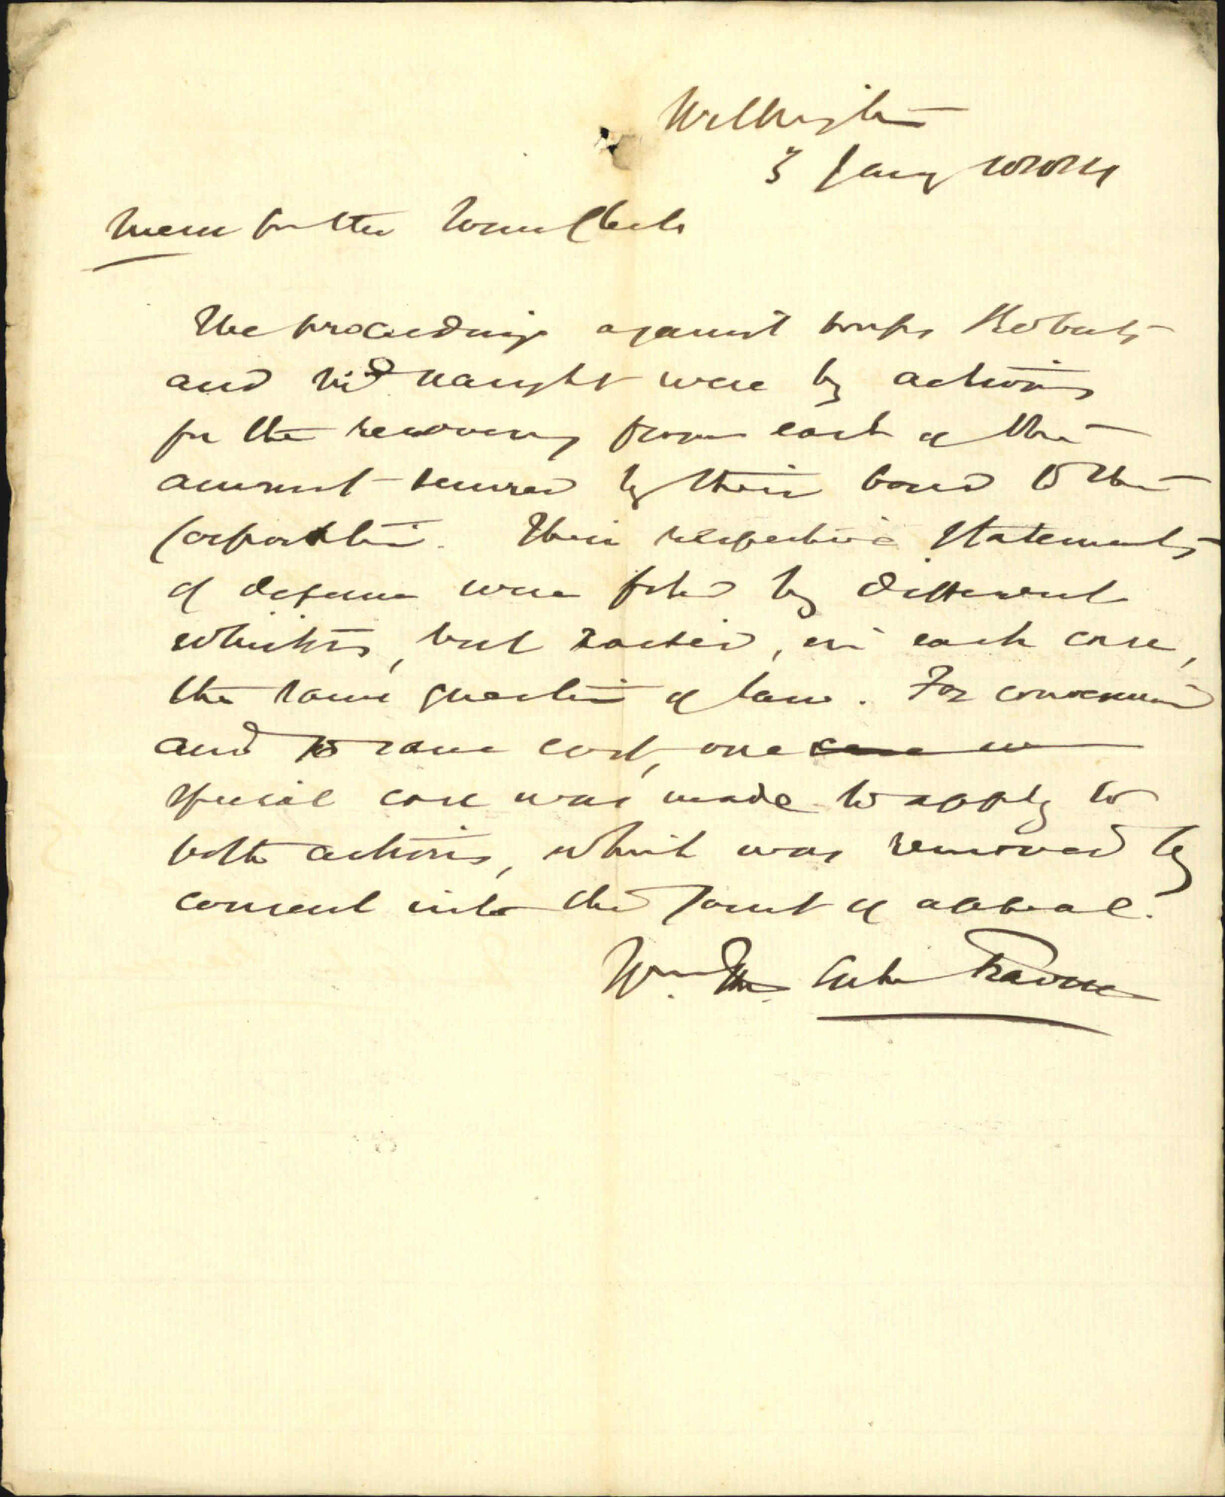 Wellington
3 Jany 1884
Mem for the Town Clerk
The proceedings against Roberts
and McNaught were by actions
for the recovery from each of the
amount secured by their bond to the
Corporation. Their respective statements
of defence were filed by different
solicitors, but raised, in each case,
the same question of law. For convenience
and to save cost, one case
special case was made to apply to
both actions, which was removed by
consent into the Court of appeal.
Wm Thos Locke Travers